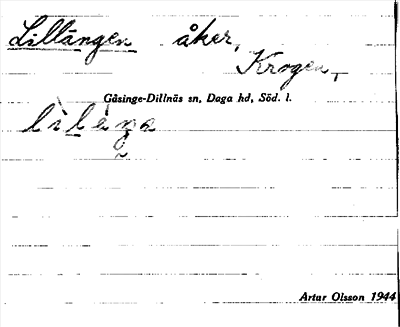 Lillängen åker,
Krogen,
Gåsinge-Dillnäs sn, Daga hd, Söd. l.
Artur Olsson 1944